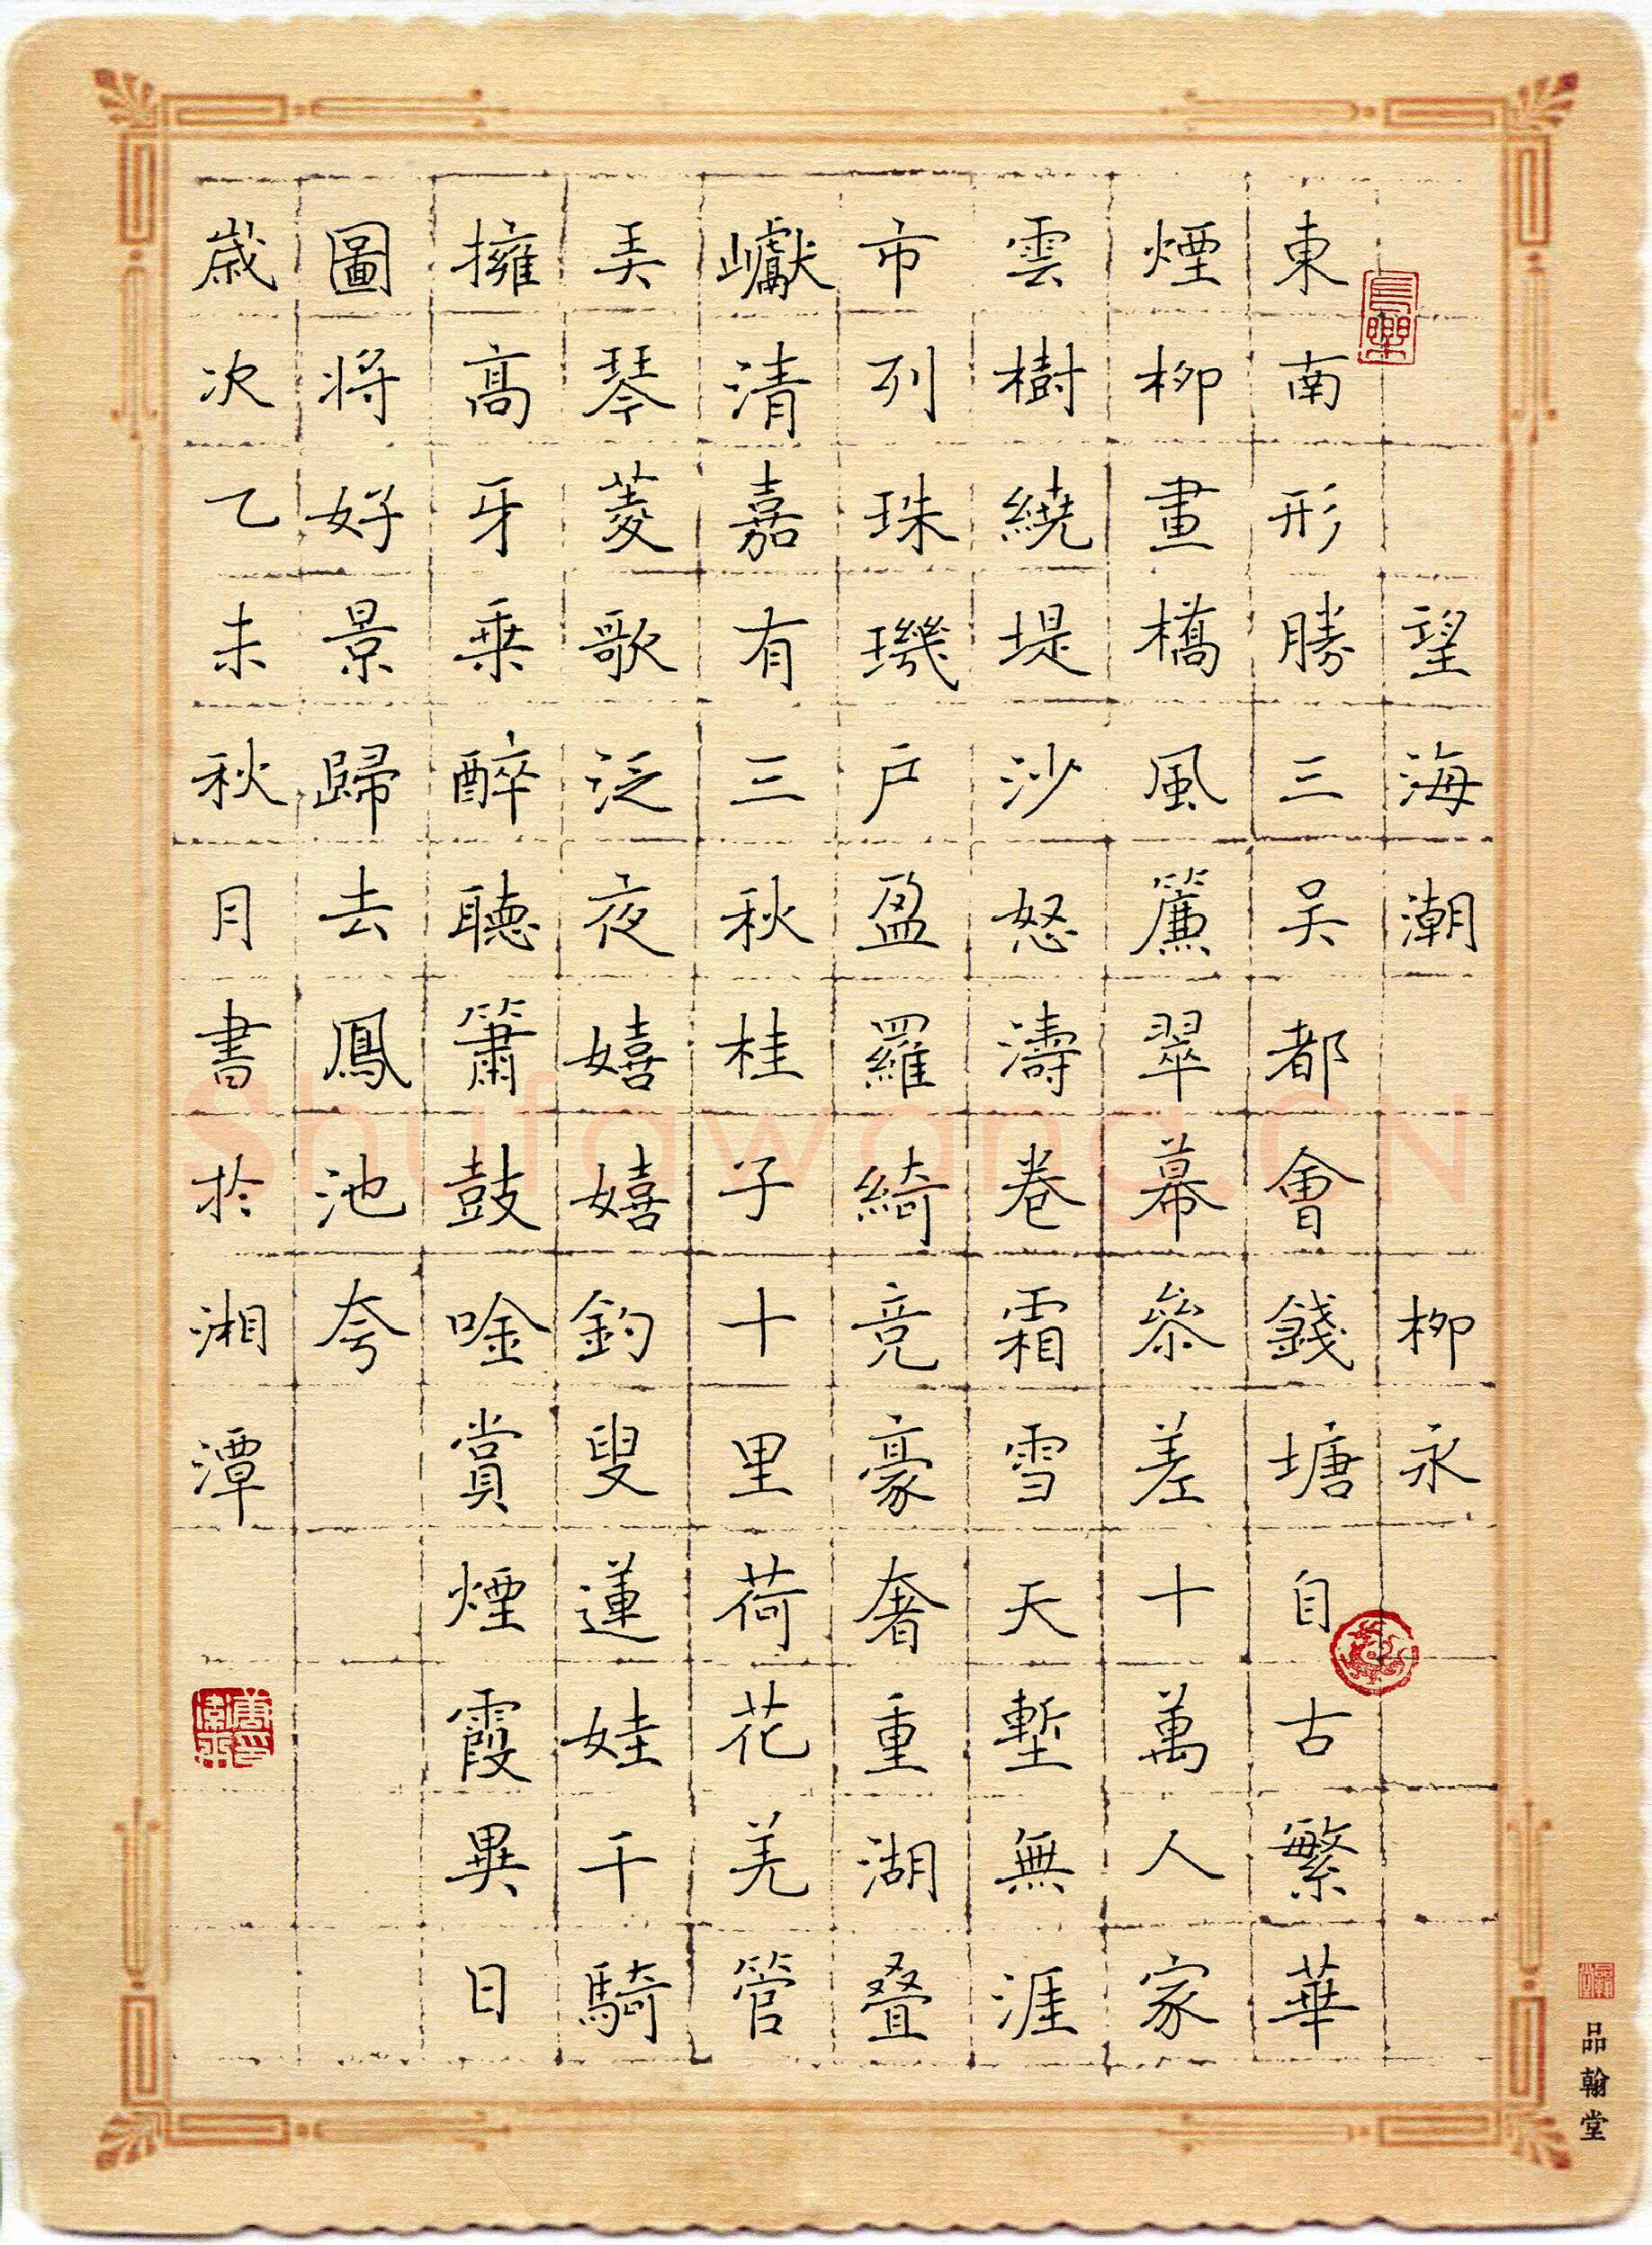 望海潮 柳永
東南形勝三吳都會錢塘自古繁華
煙柳畫橋風簾翠幕參差十萬人家
雲樹繞堤沙怒濤卷霜雪天塹無涯
市列珠璣戶盈羅綺竞豪奢重湖叠
巘清嘉有三秋桂子十里荷花羌管
弄琴菱歌泛夜嬉嬉釣叟蓮娃千騎
擁高牙乘醉聽簫鼓唫賞煙霞異日
圖將好景歸去鳳池夸
歲次乙未秋月書於湘潭
品翰堂
Shufawang.CN